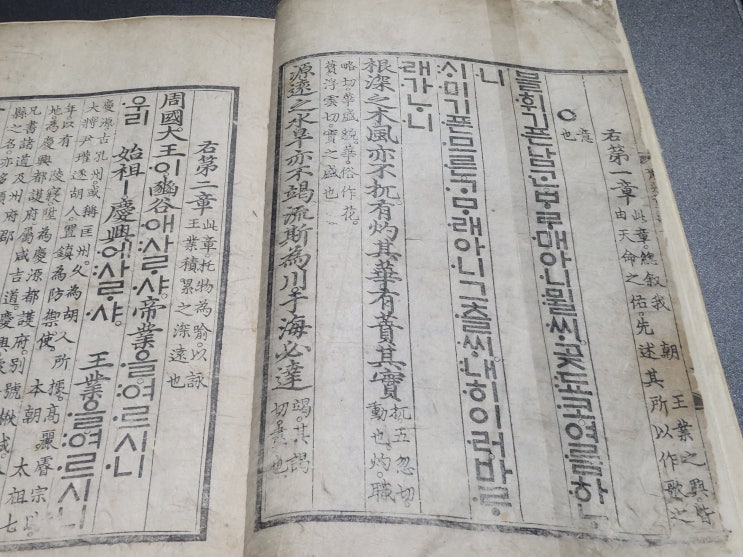 右第一章
此章。總叙我 朝 王業之興皆
由天命之佑。先述其所以作歌之
意
也
○
불휘기픈남ᄀᆞᆫᄇᆞᄅᆞ매아니뮐ᄊᆡ。곶됴코여름하ᄂᆞ
니
ᄉᆡ미기픈므른ᄀᆞᄆᆞ래아니그츨ᄊᆡ。내히이러바ᄅᆞ
래가ᄂᆞ니
根深之木風亦不扤有灼其華有蕡其實
扤五忽切。
動也灼職
略切。華盛貌。華俗作花。
蕡浮雲切。實之盛也
源遠之水旱亦不竭流斯為川于海必達
竭。其謁
切。盡也
右第二章
此章。托物為喻。以詠
王業積累之深遠也
周國大王이豳谷애사ᄅᆞ샤。帝業을여르시니
우리 始祖ㅣ慶興에사ᄅᆞ샤。王業을여르시니
慶源古孔州。或稱匡州。久為胡人所㨿。高麗睿宗以
大將尹瓘逐胡人。置鎮為防禦使。本朝 太祖七
年以有 陵寢陞為慶源都護府。別號楸城
地。為慶興都護府屬咸吉道慶興
兄書諸道及州府郡
縣之名。亦